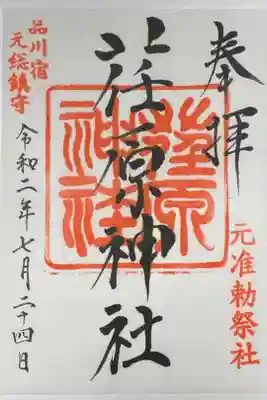 奉拝
元准勅祭社
荏原神社
荏原
神社
品川宿
元総鎮守
令和二年七月二十四日